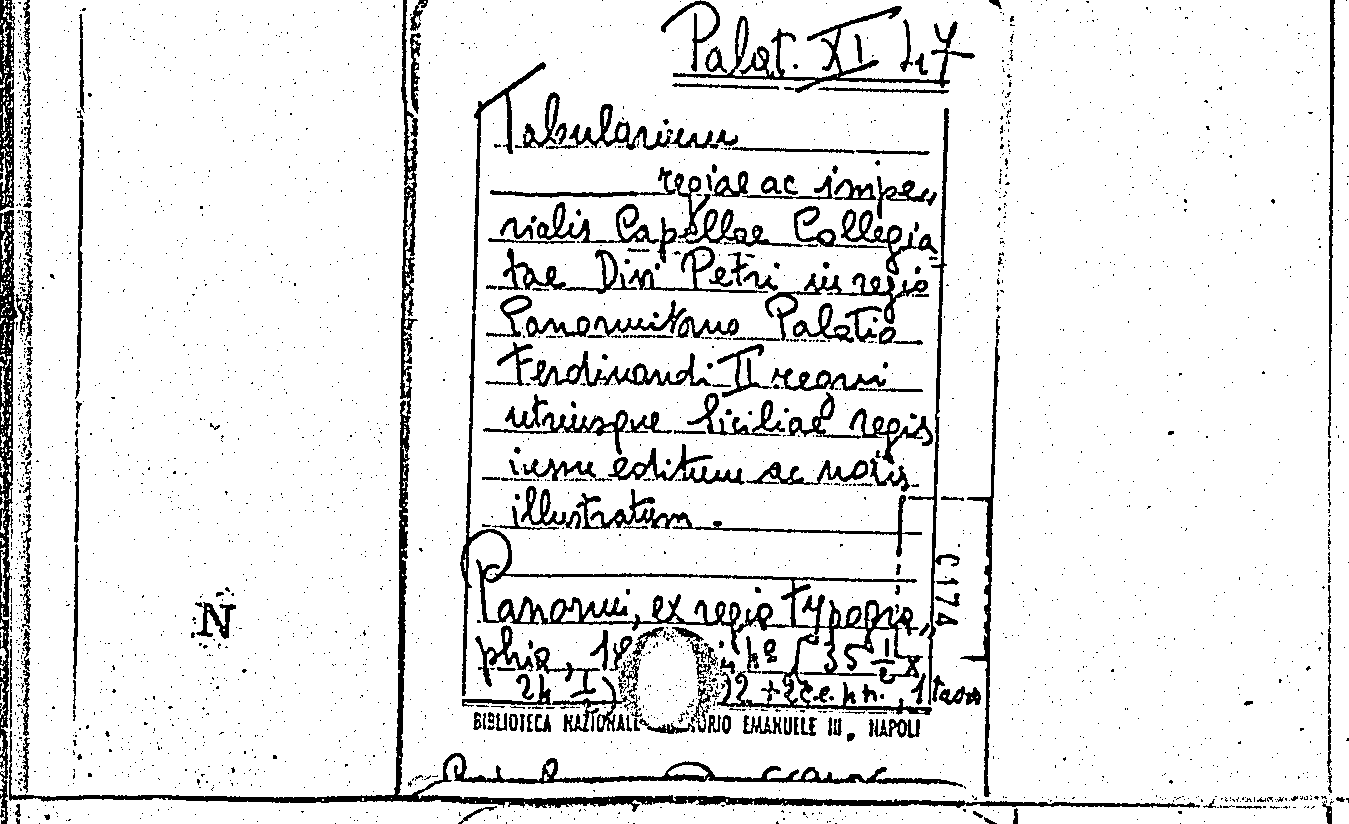 Palat. XI 47
Tabularium
regiae ac impe„
rialis Capellae Collegia
tae Divi Petri in regio
Panormitano Palatio
Ferdinandi II regni
utriusque Siciliae regis
iussu editum ac notis
illustratum.
Panormi, ex regia typogra„
phia, 18 in 4º (35 1/2 x
24 1/2) 22 + 2 c.e.nn., 1 tavv
BIBLIOTECA NAZIONALE ORIO EMANUELE III. NAPOLI
C 174
N